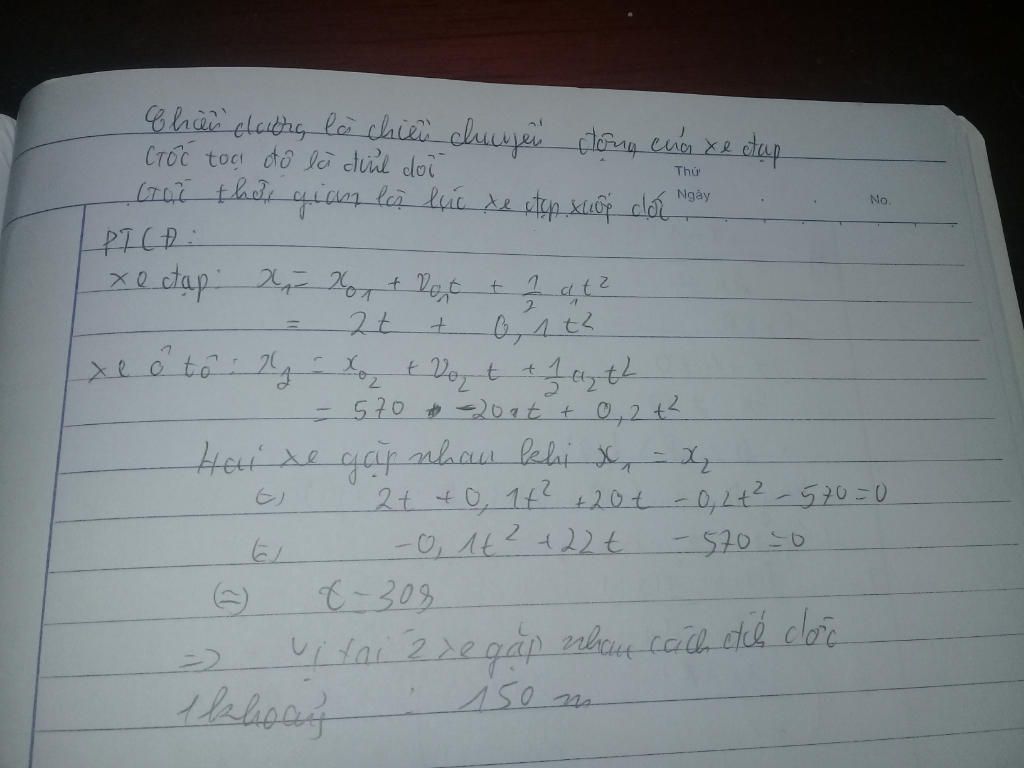 Chiều dương là chiều chuyển động của xe đạp
Gốc toạ độ là đỉnh dốc
Thứ
Gốc thời gian là lúc xe đạp xuống dốc
Ngày
No.
PTCĐ:
xe đạp: x₁ = x₀₁ + v₀₁t + 1/2 a₁t²
= 2t + 0,1t²
xe ô tô: x₂ = x₀₂ + v₀₂ t + 1/2 a₂t²
= 570 - 20t + 0,2t²
Hai xe gặp nhau khi x₁ = x₂
(=) 2t + 0,1t² + 20t - 0,2t² - 570 = 0
(=) -0,1t² + 22t - 570 = 0
(=) t = 30s
=> Vị trí 2 xe gặp nhau cách đỉnh dốc
1 khoảng : 150 m